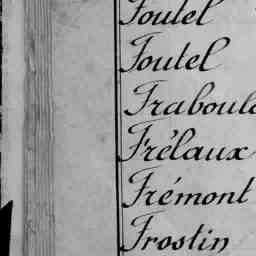 Foutel
Foutel
Fraboule
Frélaux
Frémont
Frostin